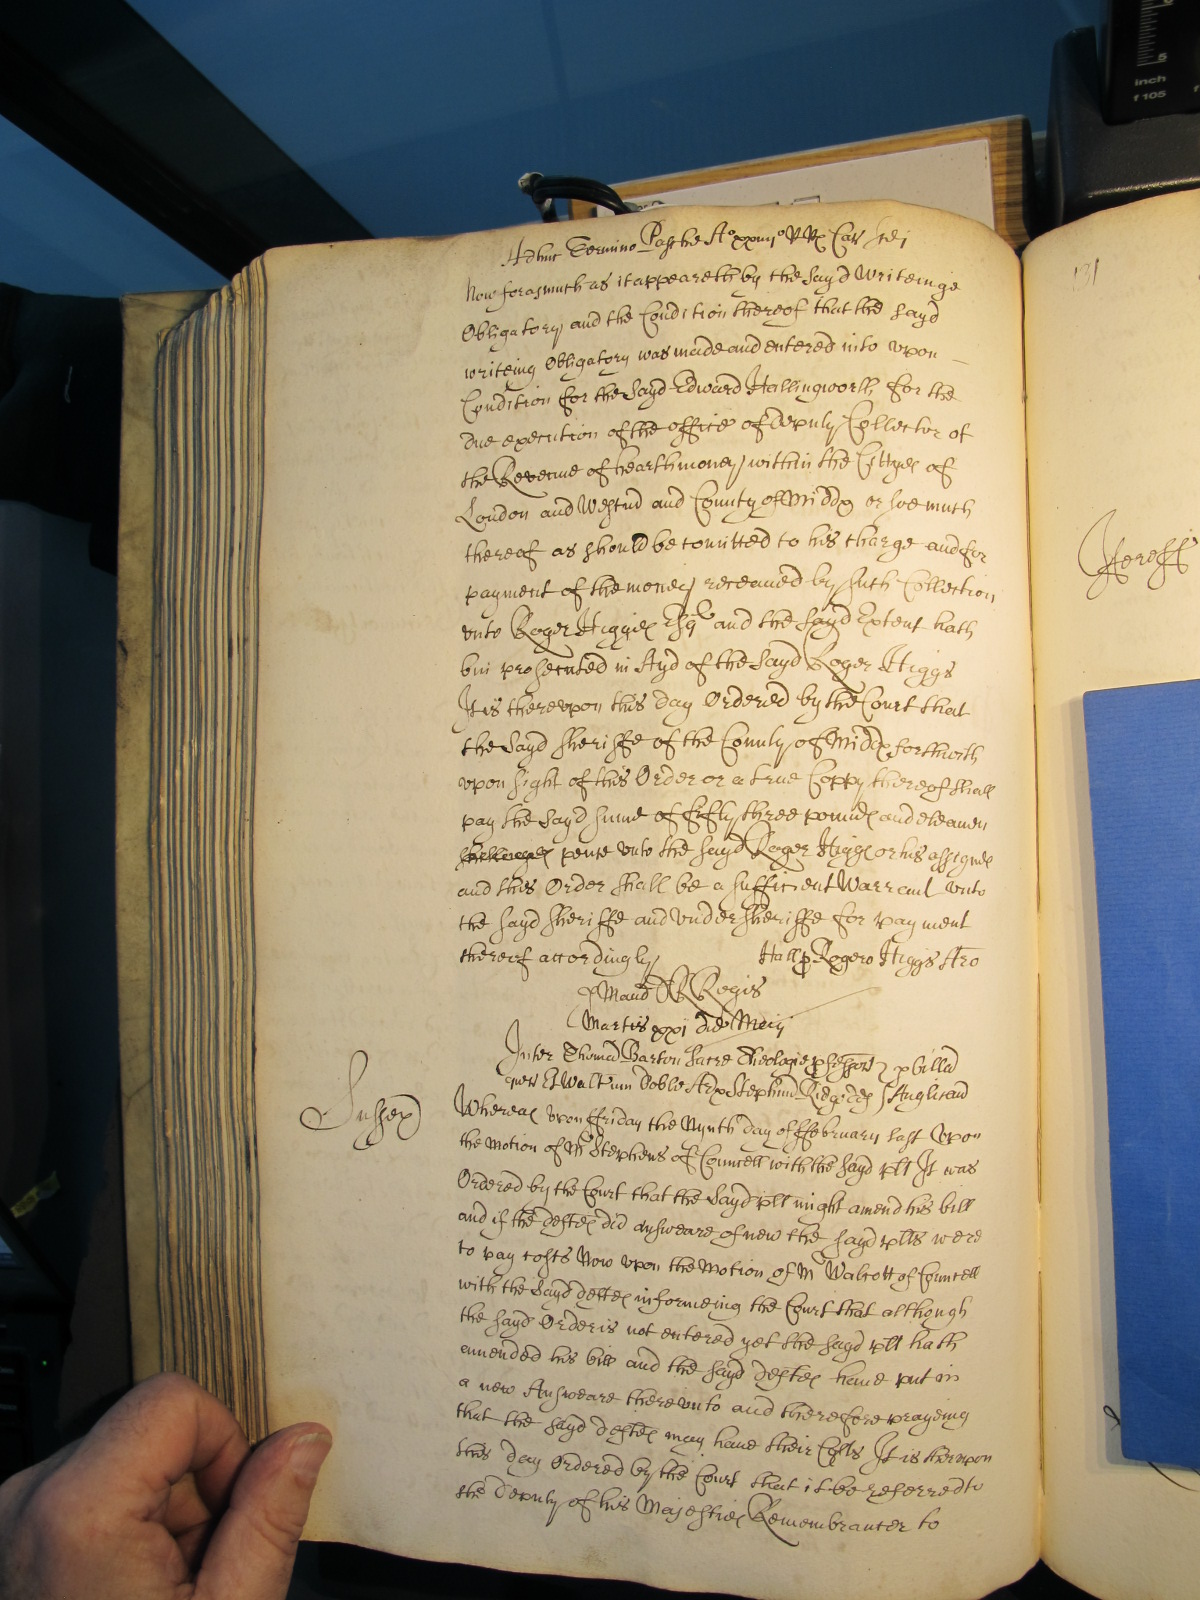 Adhuc Termino Pasche Ao xxiiijo R Rx Car scdi
Now forasmuch as it appeareth by the sayd Writeinge
Obligatory and the Condition thereof that the sayd
writeing Obligatory was made and entered into upon
Condition for the sayd Edward Hallingworth for the
due execution of the office of Deputy Collector of
the Revenue of hearthmoney within the Cittyes of
London and Westmr and County of Middx or soe much
thereof as should be comitted to his charge and for
payment of the money receaued by such Collection
unto Roger Higges Esqr and the sayd Extent hath
bin prosecuted in Ayd of the sayd Roger Higgs
It is thereupon this day Ordered by the Court that
the sayd Sheriffe of the County of Middx forthwith
upon sight of this Order or a true Coppy thereof shall
pay the sayd sume of fifty three poundes and eleauen
shillinges pence unto the sayd Roger Higgs or his assignes
and this Order shall be a sufficient Warrant unto
the sayd Sheriffe and undersheriffe for payment
thereof accordingly Hall p Rogero Higgs Aro
p Mand R Regis
Martis xxj die Maij
Inter Thomam Barton Sacre Theologie p fessor p billa
quer Et Waltrum Doble Ar Stephum Ridge def Anglican
Sussex
Whereas upon ffriday the Nynth day of ffebruary last upon
the motion of Mr Stephens of Councell with the sayd plt It was
Ordered by the Court that the sayd plt might amend his bill
and if the deftes did answeare of new the sayd plts were
to pay costs Now upon the motion of Mr Walcott of Councell
with the sayd deftes informeing the Court that although
the sayd Order is not entered yet the sayd plt hath
amended his bill and the sayd deftes haue put in
a new Answeare thereunto and therefore prayeing
that the sayd deftes may haue their Costs It is therupon
this day Ordered by the Court that it be referred to
the Deputy of his Majesties Remembrancer to
131
inch
f 105
5